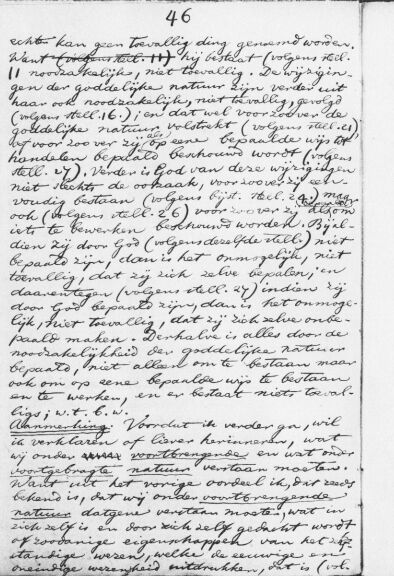 46
echter kan geen toevallig ding genoemd worden.
Want (volgens stell. 11) hij bestaat (volgens stell.
11 noodzakelijk, niet toevallig. De wijzigin-
gen der goddelijke natuur zijn verder uit
haar ook noodzakelijk, niet toevallig, gevolgd
(volgens stell. 16.); en dat wel voor zoo ver de
goddelijke natuur volstrekt (volgens stell. 21)
of voor zoo ver zij als op eene bepaalde wijs tot
handelen bepaald beschouwd wordt (volgens
stell. 27). Verder is God van deze wijzigingen
niet slechts de oorzaak, voor zoo ver zij een-
voudig bestaan (volgens bijst. stell. 24.) maar
ook (volgens stell. 26) voor zoo ver zij als om
iets te bewerken beschouwd worden. Bijal-
dien zij door God (volgens dezelfde stell.) niet
bepaald zijn, dan is het onmogelijk, niet
toevallig, dat zij zich zelve bepalen; en
daarentegen (volgens stell. 27) indien zij
door God bepaald zijn, dan is het onmoge-
lijk, niet toevallig, dat zij zich zelve onbe-
paald maken. Derhalve is alles door de
noodzakelijkheid der goddelijke natuur
bepaald, niet alleen om te bestaan maar
ook om op eene bepaalde wijs te bestaan
en te werken, en er bestaat niets toeval-
ligs; w. t. b. w.
Aanmerking. Voordat ik verder ga, wil
ik verklaren of liever herinneren, wat
wij onder voortbrengende en wat onder
voortgebragte natuur verstaan moeten.
Want uit het vorige oordeel ik, dat reeds
bekend is, dat wij onder voortbrengende
natuur datgene verstaan moeten, wat in
zich zelf is en door zich zelf gedacht wordt
of zoodanige eigenschappen van het zelf-
standige wezen, welke de eeuwige en
oneindige wezenheid uitdrukken, dat is (vol-